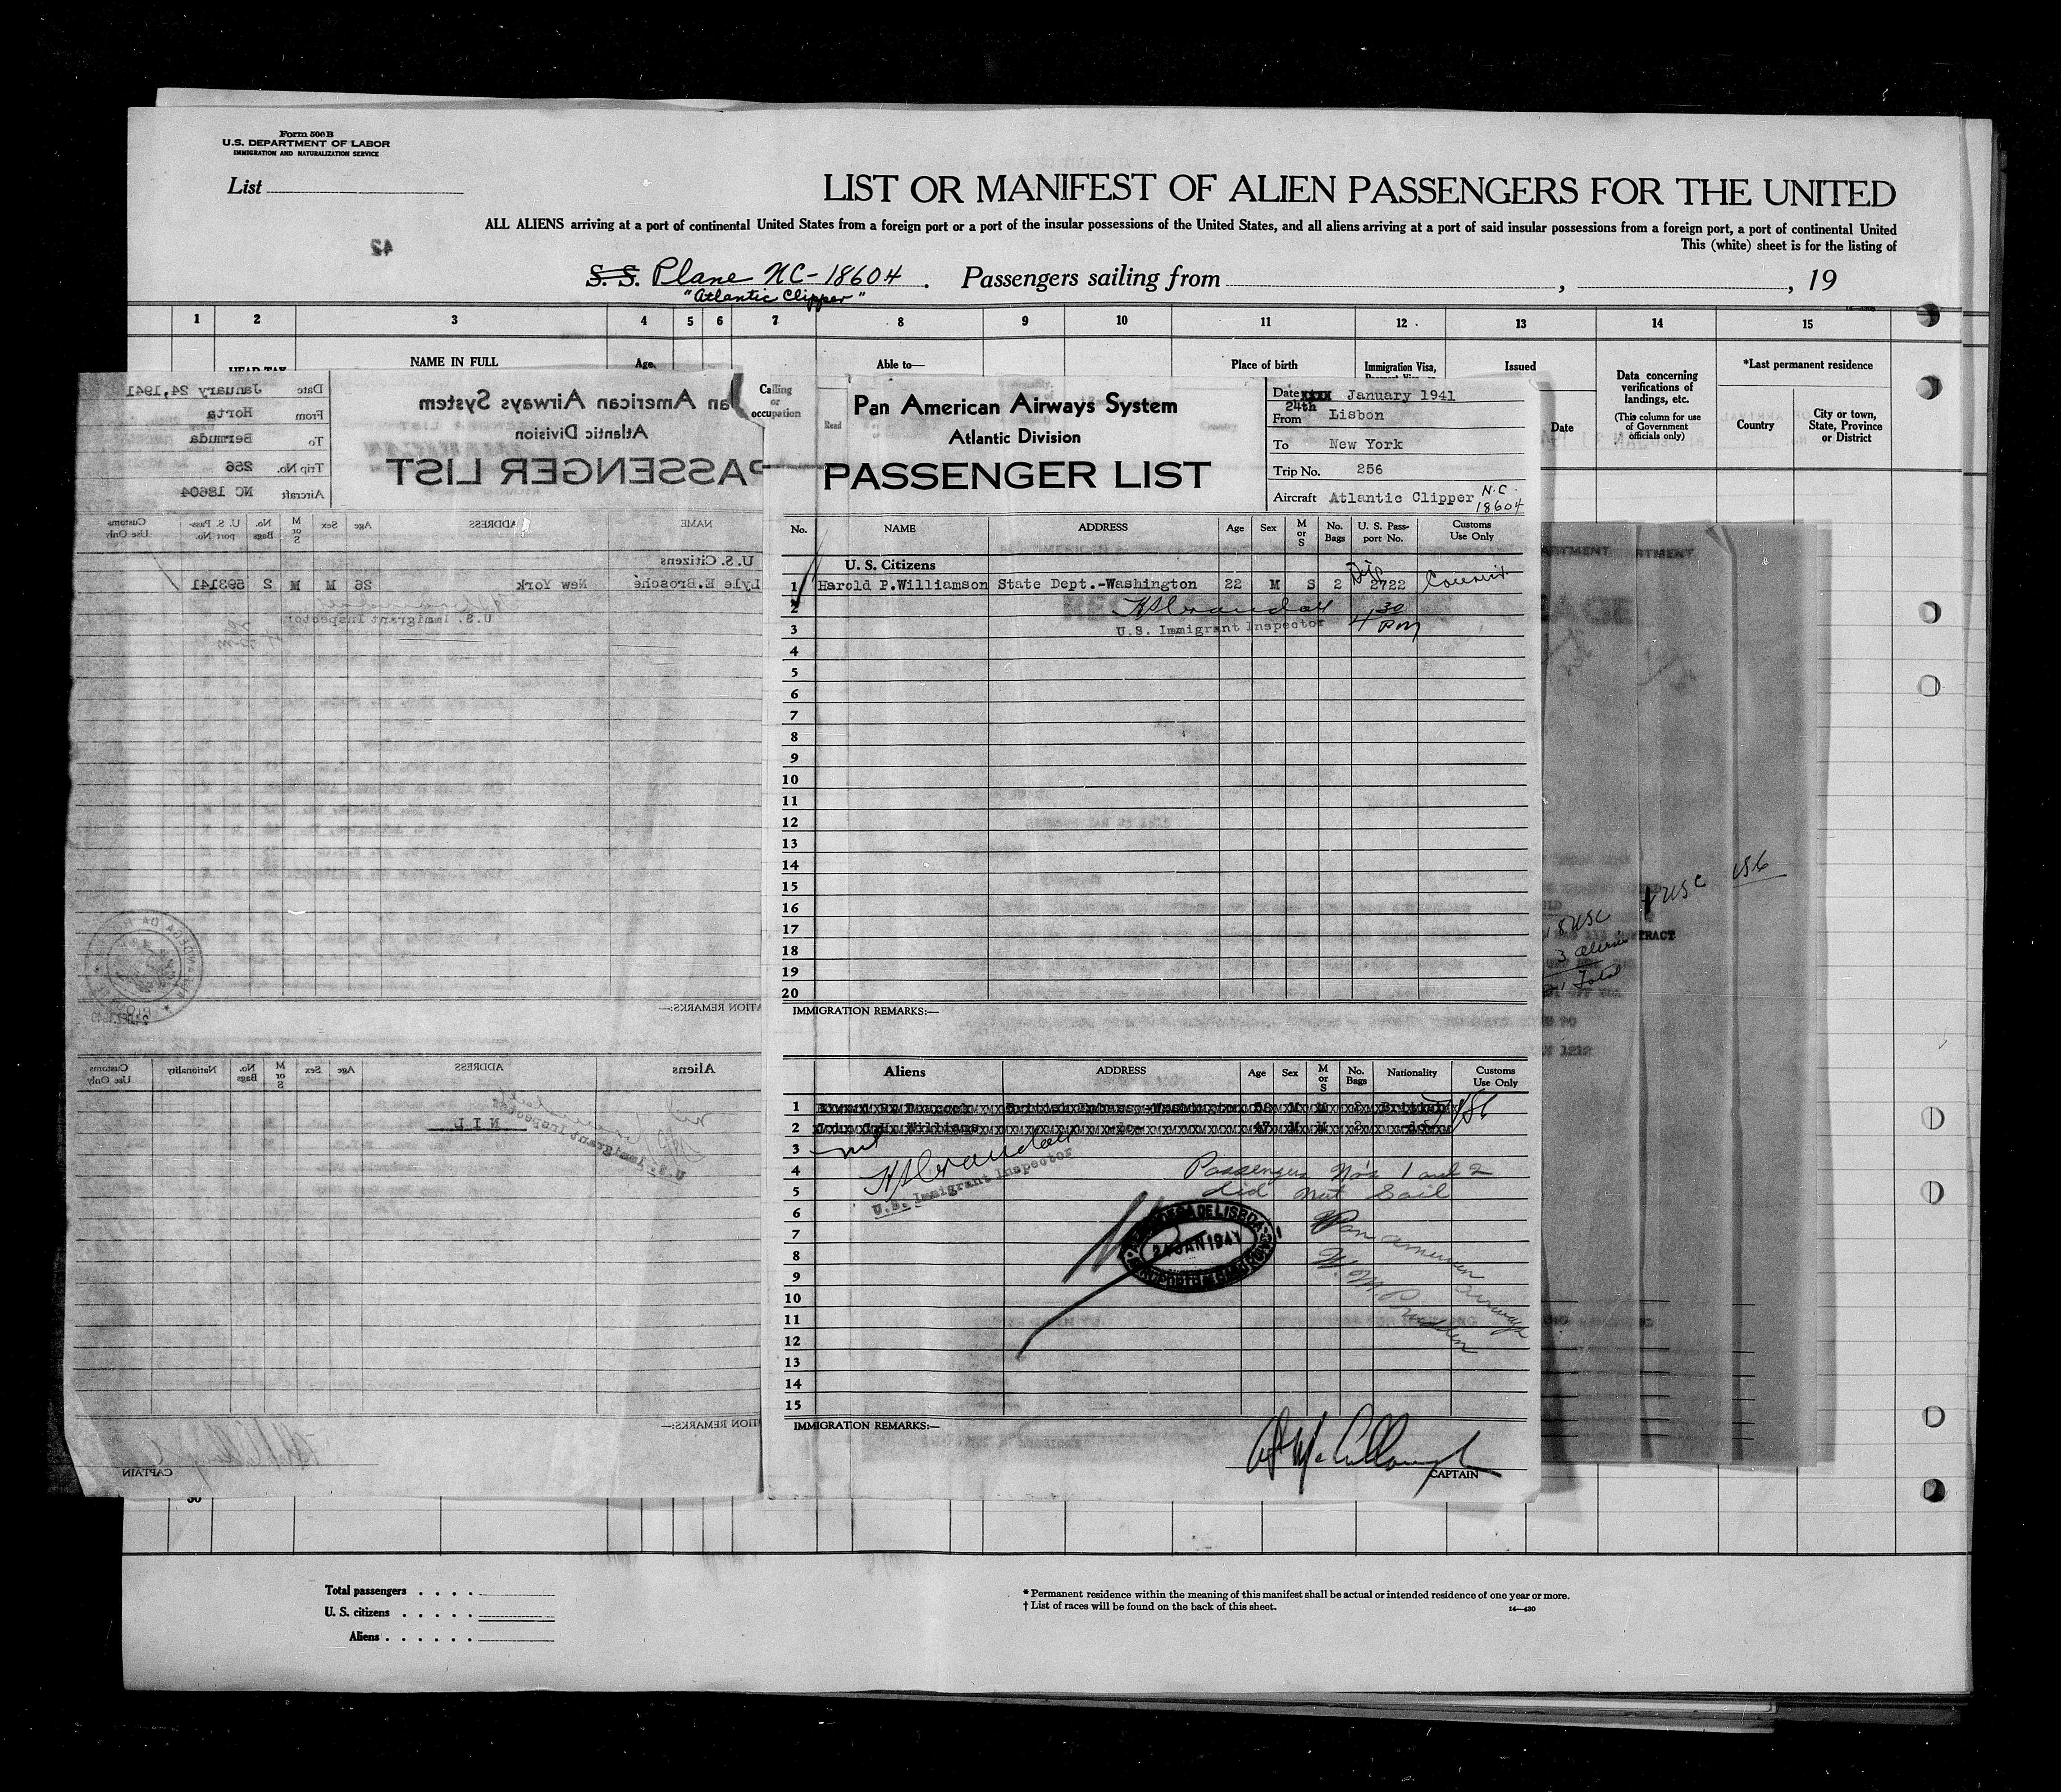 Form 500B
U.S. DEPARTMENT OF LABOR
IMMIGRATION AND NATURALIZATION SERVICE
List
LIST OR MANIFEST OF ALIEN PASSENGERS FOR THE UNITED
ALL ALIENS arriving at a port of continental United States from a foreign port or a port of the insular possessions of the United States, and all aliens arriving at a port of said insular possessions from a foreign port, a port of continental United
This (white) sheet is for the listing of
42
S. S. Plane NC-18604 . Passengers sailing from , , 19
"Atlantic Clipper"
1 2 3 4 5 6 7 8 9 10 11 12 13 14 15
HEAD-TAX
NAME IN FULL
Age
Calling or occupation
Able to—
Read
Place of birth
Immigration Visa,
Issued
Date
Data concerning verifications of landings, etc.
(This column for use of Government officials only)
*Last permanent residence
Country
City or town, State, Province or District
Pan American Airways System
Atlantic Division
PASSENGER LIST
Date January 24, 1941
From Horta
To Bermuda
Trip No. 256
Aircraft NC 18604
NAME ADDRESS Age Sex M or S No. Bags U. S. Pass-port No. Customs Use Only
U.S. Citizens
Lyle E.Brosché New York 26 M M 2 593141
U.S. Immigrant Inspector
REMARKS:—
Aliens ADDRESS Age Sex M or S No. Bags Nationality Customs Use Only
N I L
U.S. Immigrant Inspector
REMARKS:—
CAPTAIN
Pan American Airways System
Atlantic Division
PASSENGER LIST
Date xxxx January 1941
24th
From Lisbon
To New York
Trip No. 256
Aircraft Atlantic Clipper N.C. 18604
No. NAME ADDRESS Age Sex M or S No. Bags U. S. Pass-port No. Customs Use Only
U. S. Citizens
1 Harold P.Williamson State Dept.-Washington 22 M S 2 Dip 2722
2 4 30
3 U.S. Immigrant Inspector PM
4
5
6
7
8
9
10
11
12
13
14
15
16
17
18
19
20
IMMIGRATION REMARKS:—
Aliens ADDRESS Age Sex M or S No. Bags Nationality Customs Use Only
1 British Embassy-Washington M M 2 British
2 Williams -do- 47 M M 2 -do-
3 nil
4 Passengers No's 1 and 2
5 did not Sail
U.S. Immigrant Inspector
6
7 Pan American Airways
8
9
10
11
12
13
14
15
DE LISBOA
24 JAN 1941
IMMIGRATION REMARKS:—
CAPTAIN
18 USC
3 aliens
21 Total
1 USC
USC
Total passengers . . . .
U. S. citizens . . . . .
Aliens . . . . . .
* Permanent residence within the meaning of this manifest shall be actual or intended residence of one year or more.
† List of races will be found on the back of this sheet.
14—430